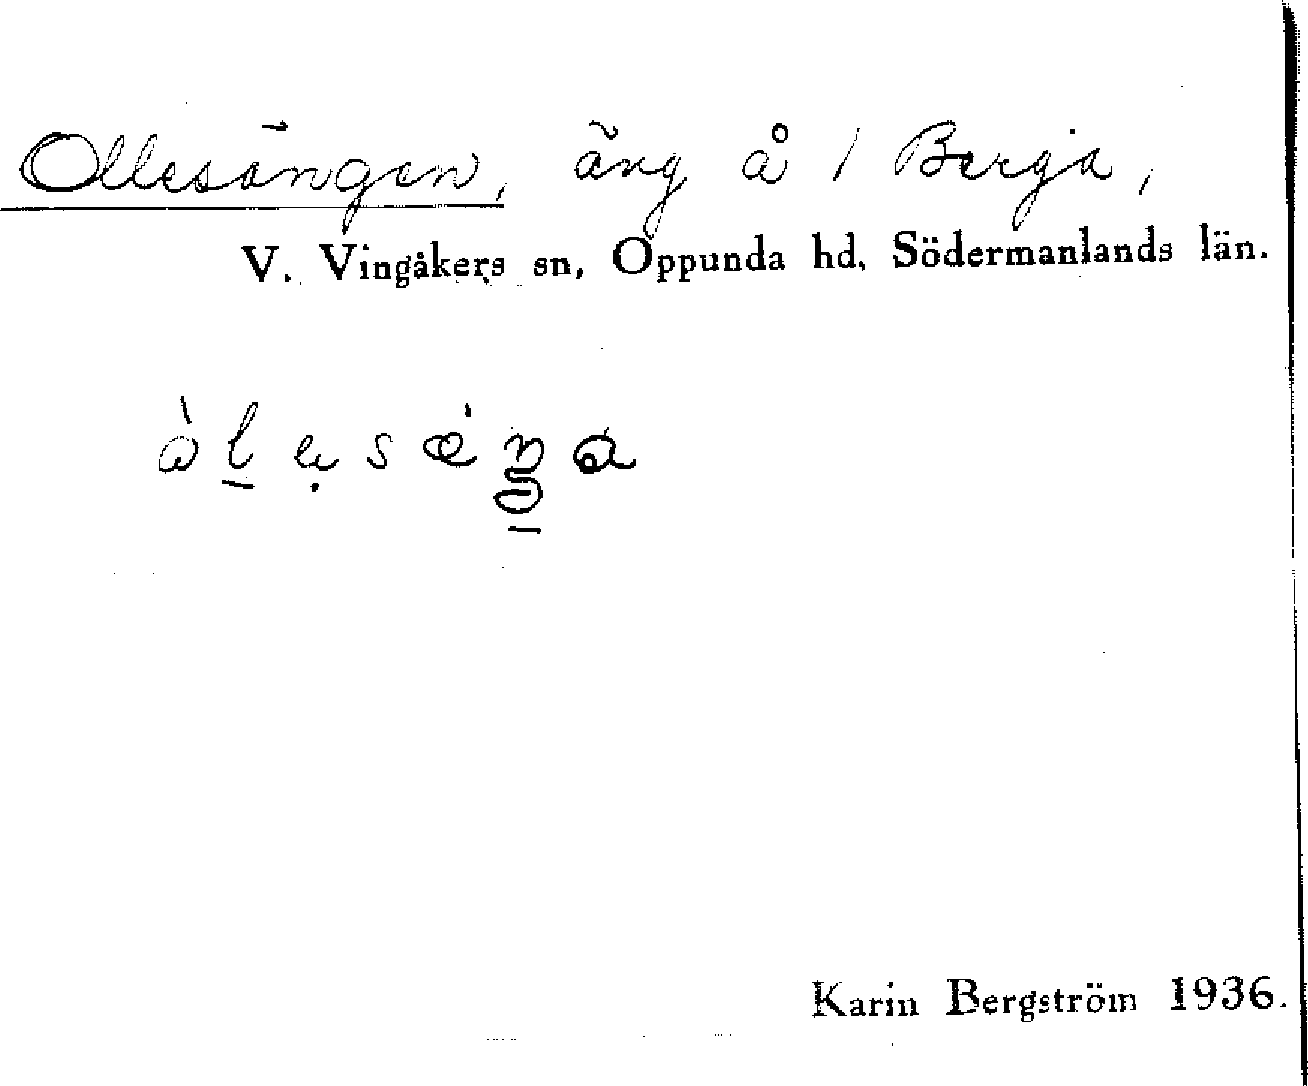 Ollesängen, äng å 1 Berga,
V. Vingåkers sn, Oppunda hd, Södermanlands län.
Karin Bergström 1936.